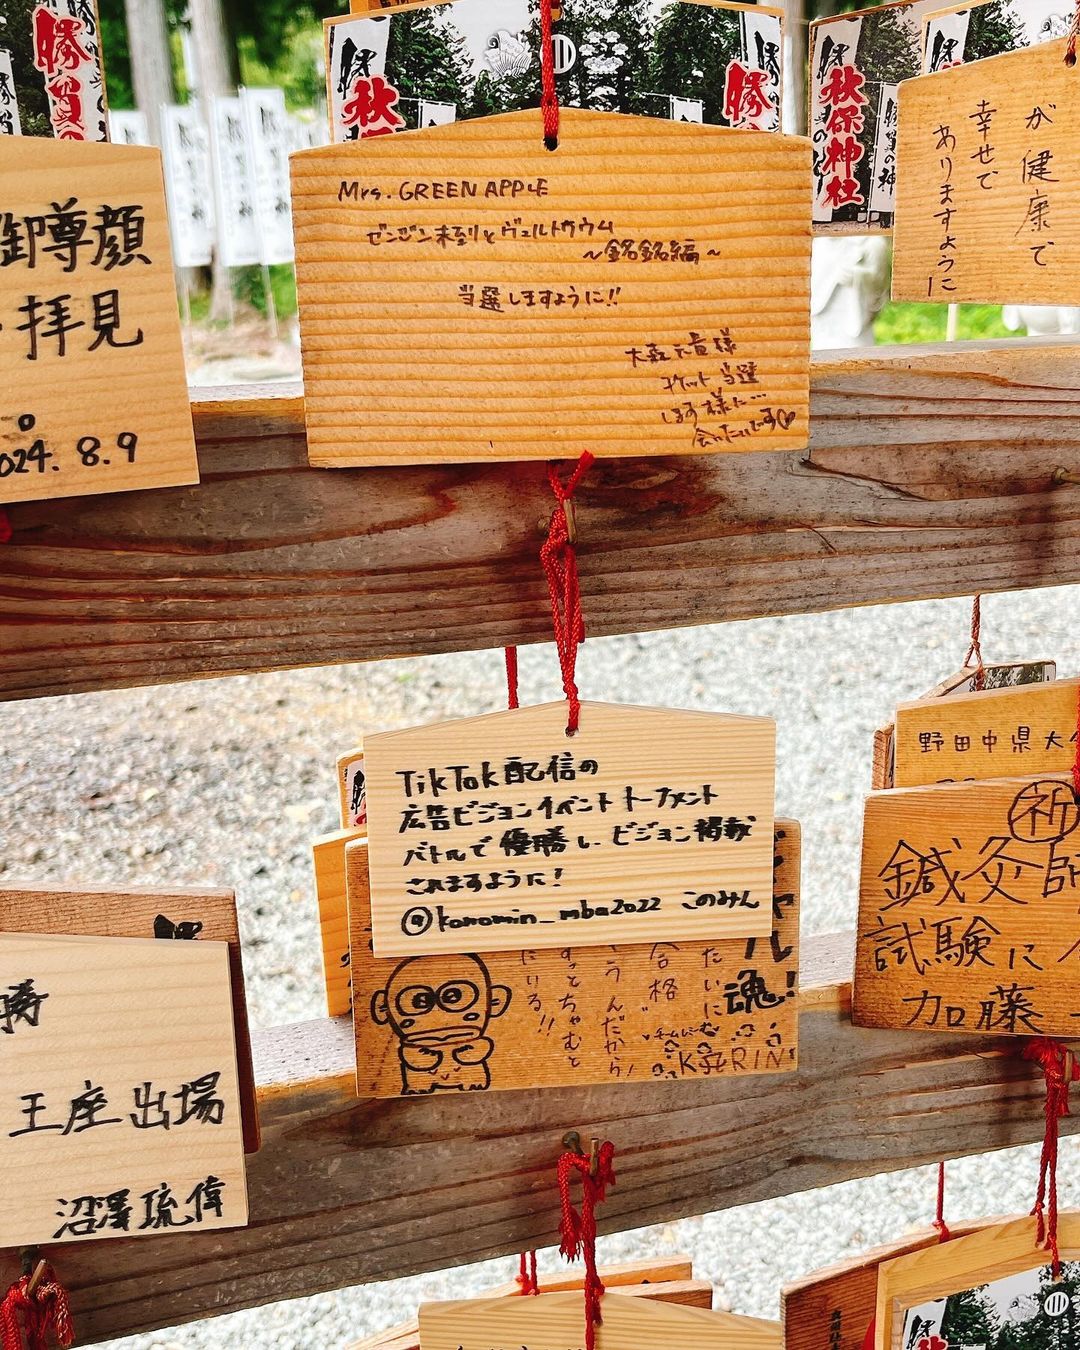 勝
秋
勝
秋保神社
勝負の神
が健康で
幸せで
ありますように
御尊顔
拝見
2024. 8.9
Mrs. GREEN APPLE
ゼンジン未到とヴェルトゥウム
～銘銘編～
当選しますように!!
大森元貴様
チケット当選
します様に…
会いたいです♡
TikTok配信の
広告ビジョンイベントトーナメント
バトルで優勝し、ビジョン掲載
されますように!
@konomin_mba2022 このみん
魂!
合格
うんだから!
ずっとちゃむと
にいる!!
KAERIN
野田中県大会
祈
鍼灸師
試験に合
加藤
勝
王座出場
沼澤琉偉